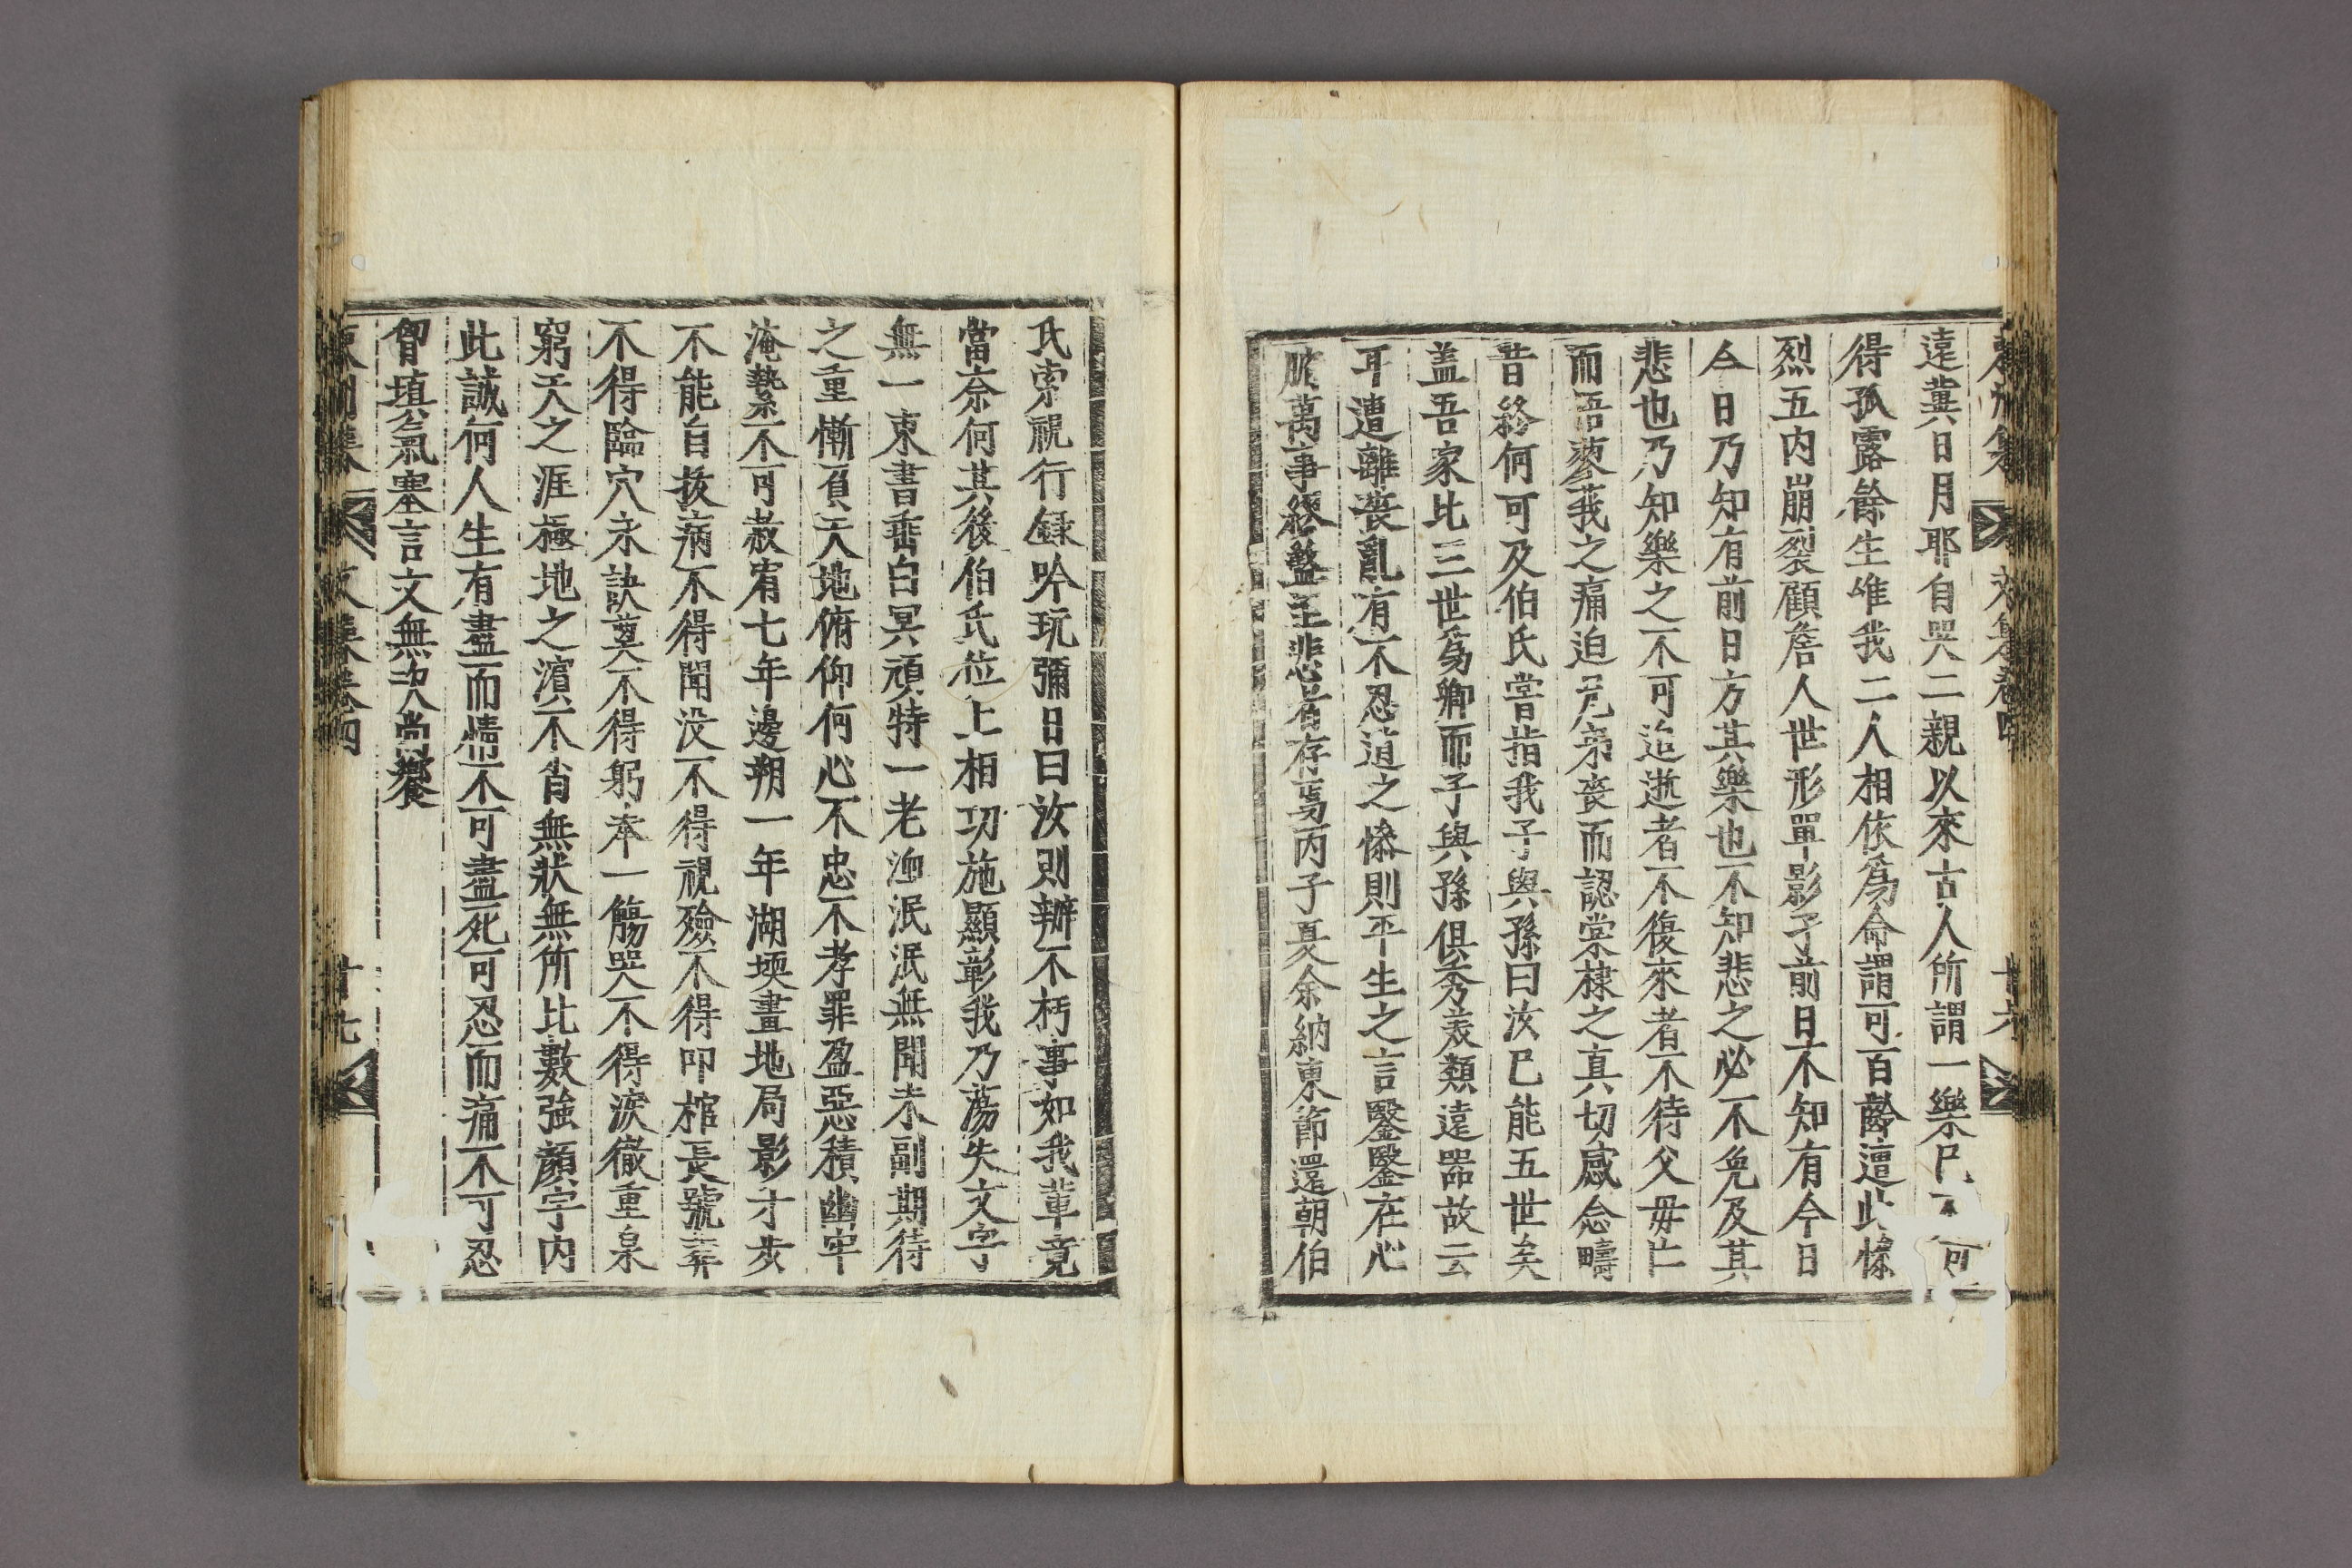 遠冀日月耶自哭二親以來古人所謂一樂已不可
得孤露餘生唯我二人相依爲命謂可百齡遭此慘
烈五內崩裂顧詹人世形單影孑前日不知有今日
今日乃知有前日方其樂也不知悲之必不免及其
悲也乃知樂之不可追逝者不復來者不待父母亡
而吾蓼莪之痛迫兄弟喪而認棠棣之眞切感念疇
昔終何可及伯氏嘗指我子與孫曰汝已能五世矣
盖吾家比三世爲卿而子與孫俱秀羙類遠器故云
耳遭離喪亂有不忍道之慘則平生之言鑿鑿在心
脾萬事繆盭至悲者存焉丙子夏余納東節還朝伯
氏索視行錄吟玩彌日曰汝則辦不朽事如我輩竟
當奈何其後伯氏位上相功施顯彰我乃蕩失文字
無一束書垂白冥頑特一老泯泯無聞未副期待
之重慚負天地俯仰何心不忠不孝罪盈惡積幽牢
淹縶不可赦宥七年邊朔一年湖堧畫地局影寸步
不能自拔病不得聞沒不得視殮不得叩棺長號葬
不得臨穴永訣奠不得躬奉一觴哭不得淚徹重泉
窮天之涯極地之濱不肖無狀無所比數强顏宇內
此誠何人生有盡而情不可盡死可忍而痛不可忍
胷塡氣塞言文無次尙饗
文集卷四
廿七